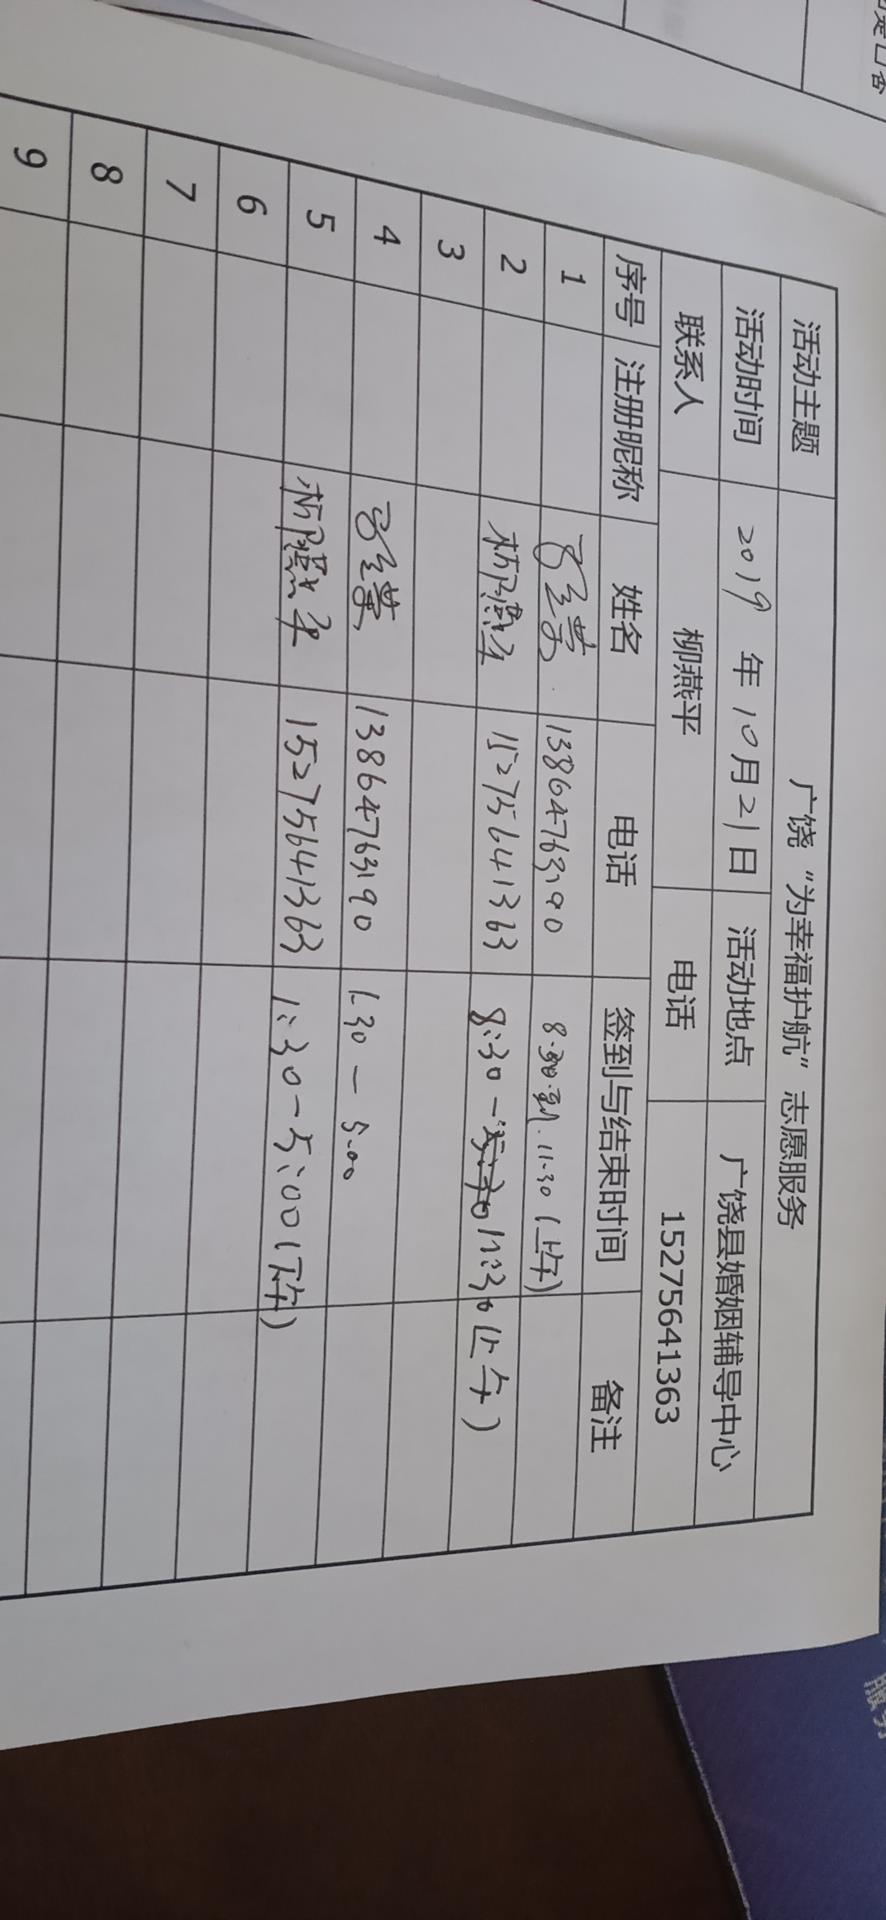 活动主题 广饶“为幸福护航”志愿服务
活动时间 2019年10月21日 活动地点 广饶县婚姻辅导中心
联系人 柳燕平 电话 15275641363
序号 注册昵称 姓名 电话 签到与结束时间 备注
1 13864763190 8:30到11:30(上午)
2 15275641363 8:30-11:30(上午)
3
4 13864763190 1:30-5:00
5 15275641363 1:30-5:00(下午)
6
7
8
9
服务